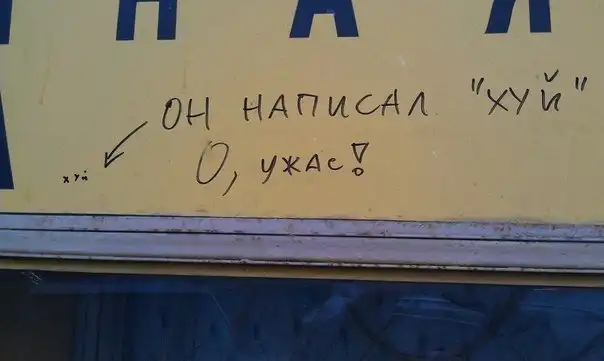 НАЯ
ОН НАПИСАЛ "ХУЙ"
О, УЖАС!
хуй